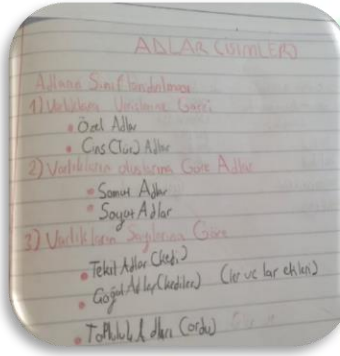 ADLAR (İSİMLER)
Adların Sınıflandırılması
1) Varlıklara Verilişlerine Göre:
• Özel Adlar
• Cins (Tür) Adlar
2) Varlıkların oluşlarına Göre Adlar
• Somut Adlar
• Soyut Adlar
3) Varlıkların Sayılarına Göre
• Tekil Adlar (kedi)
• Çoğul Adlar (kediler) (ler ve lar ekleri)
• Topluluk Adları (ordu)